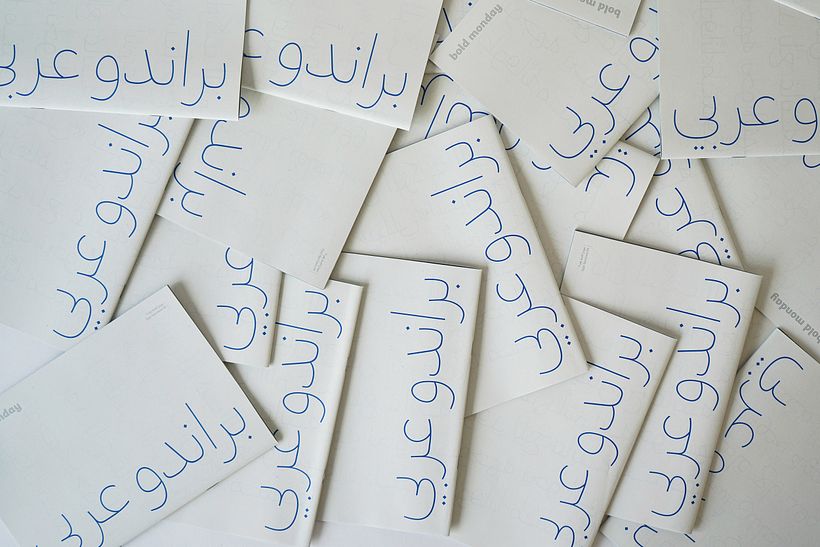 براندو عربي
براندو
bold monday
bold monday
عربي
عربي
براندو عربي
براندو عربي
عربي
براندو عربي
براندو عربي
براندو عربي
براندو عربي
براندو عربي
bold monday